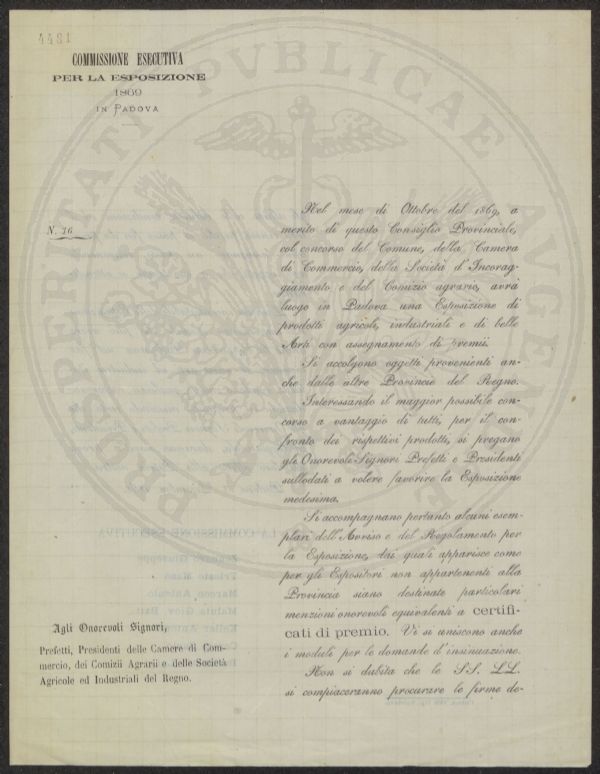 4481
COMMISSIONE ESECUTIVA
PER LA ESPOSIZIONE
1869
IN PADOVA
N. 76
Nel mese di Ottobre del 1869, a
merito di questo Consiglio Provinciale,
col concorso del Comune, della Camera
di Commercio, della Società d'Incorag-
giamento e del Comizio agrario, avrà
luogo in Padova una Esposizione di
prodotti agricoli, industriali e di belle
Arti con assegnamento di premii.
Si accolgono oggetti provenienti an-
che dalle altre Provincie del Regno.
Interessando il maggior possibile con-
corso a vantaggio di tutti, per il con-
fronto dei rispettivi prodotti, si pregano
gli Onorevoli Signori Prefetti e Presidenti
sullodati a volere favorire la Esposizione
medesima.
Si accompagnano pertanto alcuni esem-
plari dell'Avviso e del Regolamento per
la Esposizione, dai quali apparisce come
per gli Espositori non appartenenti alla
Provincia siano destinate particolari
menzioni onorevoli equivalenti a certifi-
cati di premio. Vi si uniscono anche
i moduli per le domande d'insinuazione.
Non si dubita che le SS. LL.
si compiaceranno procurare le firme de-
Agli Onorevoli Signori,
Prefetti, Presidenti delle Camere di Com-
mercio, dei Comizii Agrarii e delle Società
Agricole ed Industriali del Regno.
PROSPERITATI PVBLICAE AVGENDAE